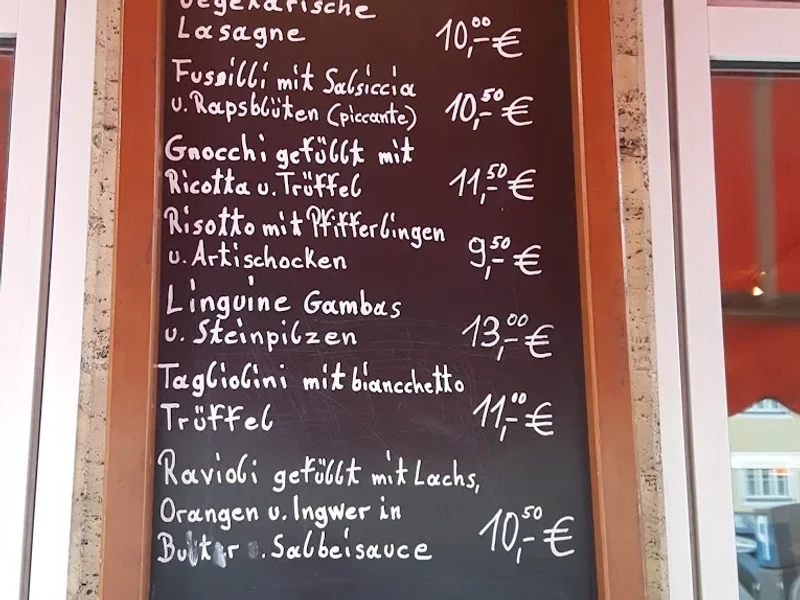 Vegetarische
Lasagne 10,00-€
Fussilli mit Salsiccia
u. Rapsblüten (piccante) 10,50-€
Gnocchi gefüllt mit
Ricotta u. Trüffel 11,50-€
Risotto mit Pfifferlingen
u. Artischocken 9,50-€
Linguine Gambas
u. Steinpilzen 13,00-€
Tagliolini mit biancchetto
Trüffel 11,00-€
Ravioli gefüllt mit Lachs,
Orangen u. Ingwer in
Butter . Salbeisauce 10,50-€